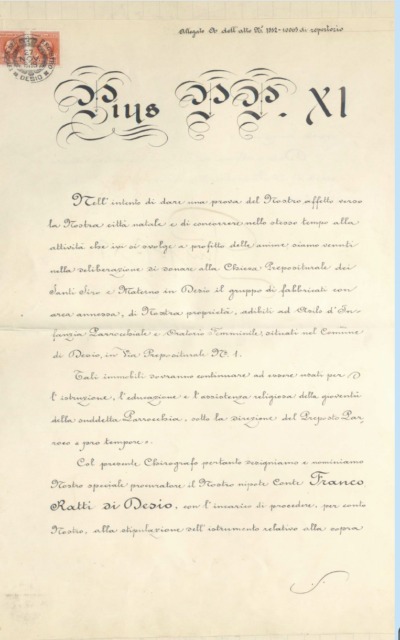 Allegato A) dell'atto N. 1912-10005 di repertorio
DESIO
Pius PP. XI
Nell'intento di dare una prova del Nostro affetto verso
la Nostra città natale e di concorrere nello stesso tempo alla
attività che ivi si svolge a profitto delle anime, siamo venuti
nella deliberazione di donare alla Chiesa Prepositurale dei
Santi Siro e Materno in Desio il gruppo di fabbricati con
area annessa, di Nostra proprietà, adibiti ad Asilo d'In-
fanzia Parrocchiale e Oratorio Femminile, situati nel Comune
di Desio, in Via Prepositurale N. 1.
Tali immobili dovranno continuare ad essere usati per
l'istruzione, l'educazione e l'assistenza religiosa della gioventù
della suddetta Parrocchia, sotto la direzione del Preposto Par,
roco « pro tempore ».
Col presente Chirografo pertanto designiamo e nominiamo
Nostro speciale procuratore il Nostro nipote Conte Franco
Ratti di Desio, con l'incarico di procedere, per conto
Nostro, alla stipulazione dell'istrumento relativo alla sopra